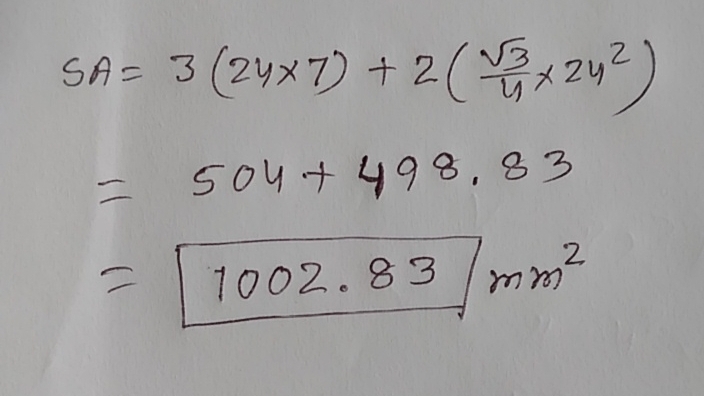 SA = 3 (24×7) + 2 (√3/4 × 24²)
= 504 + 498.83
= 1002.83 mm²